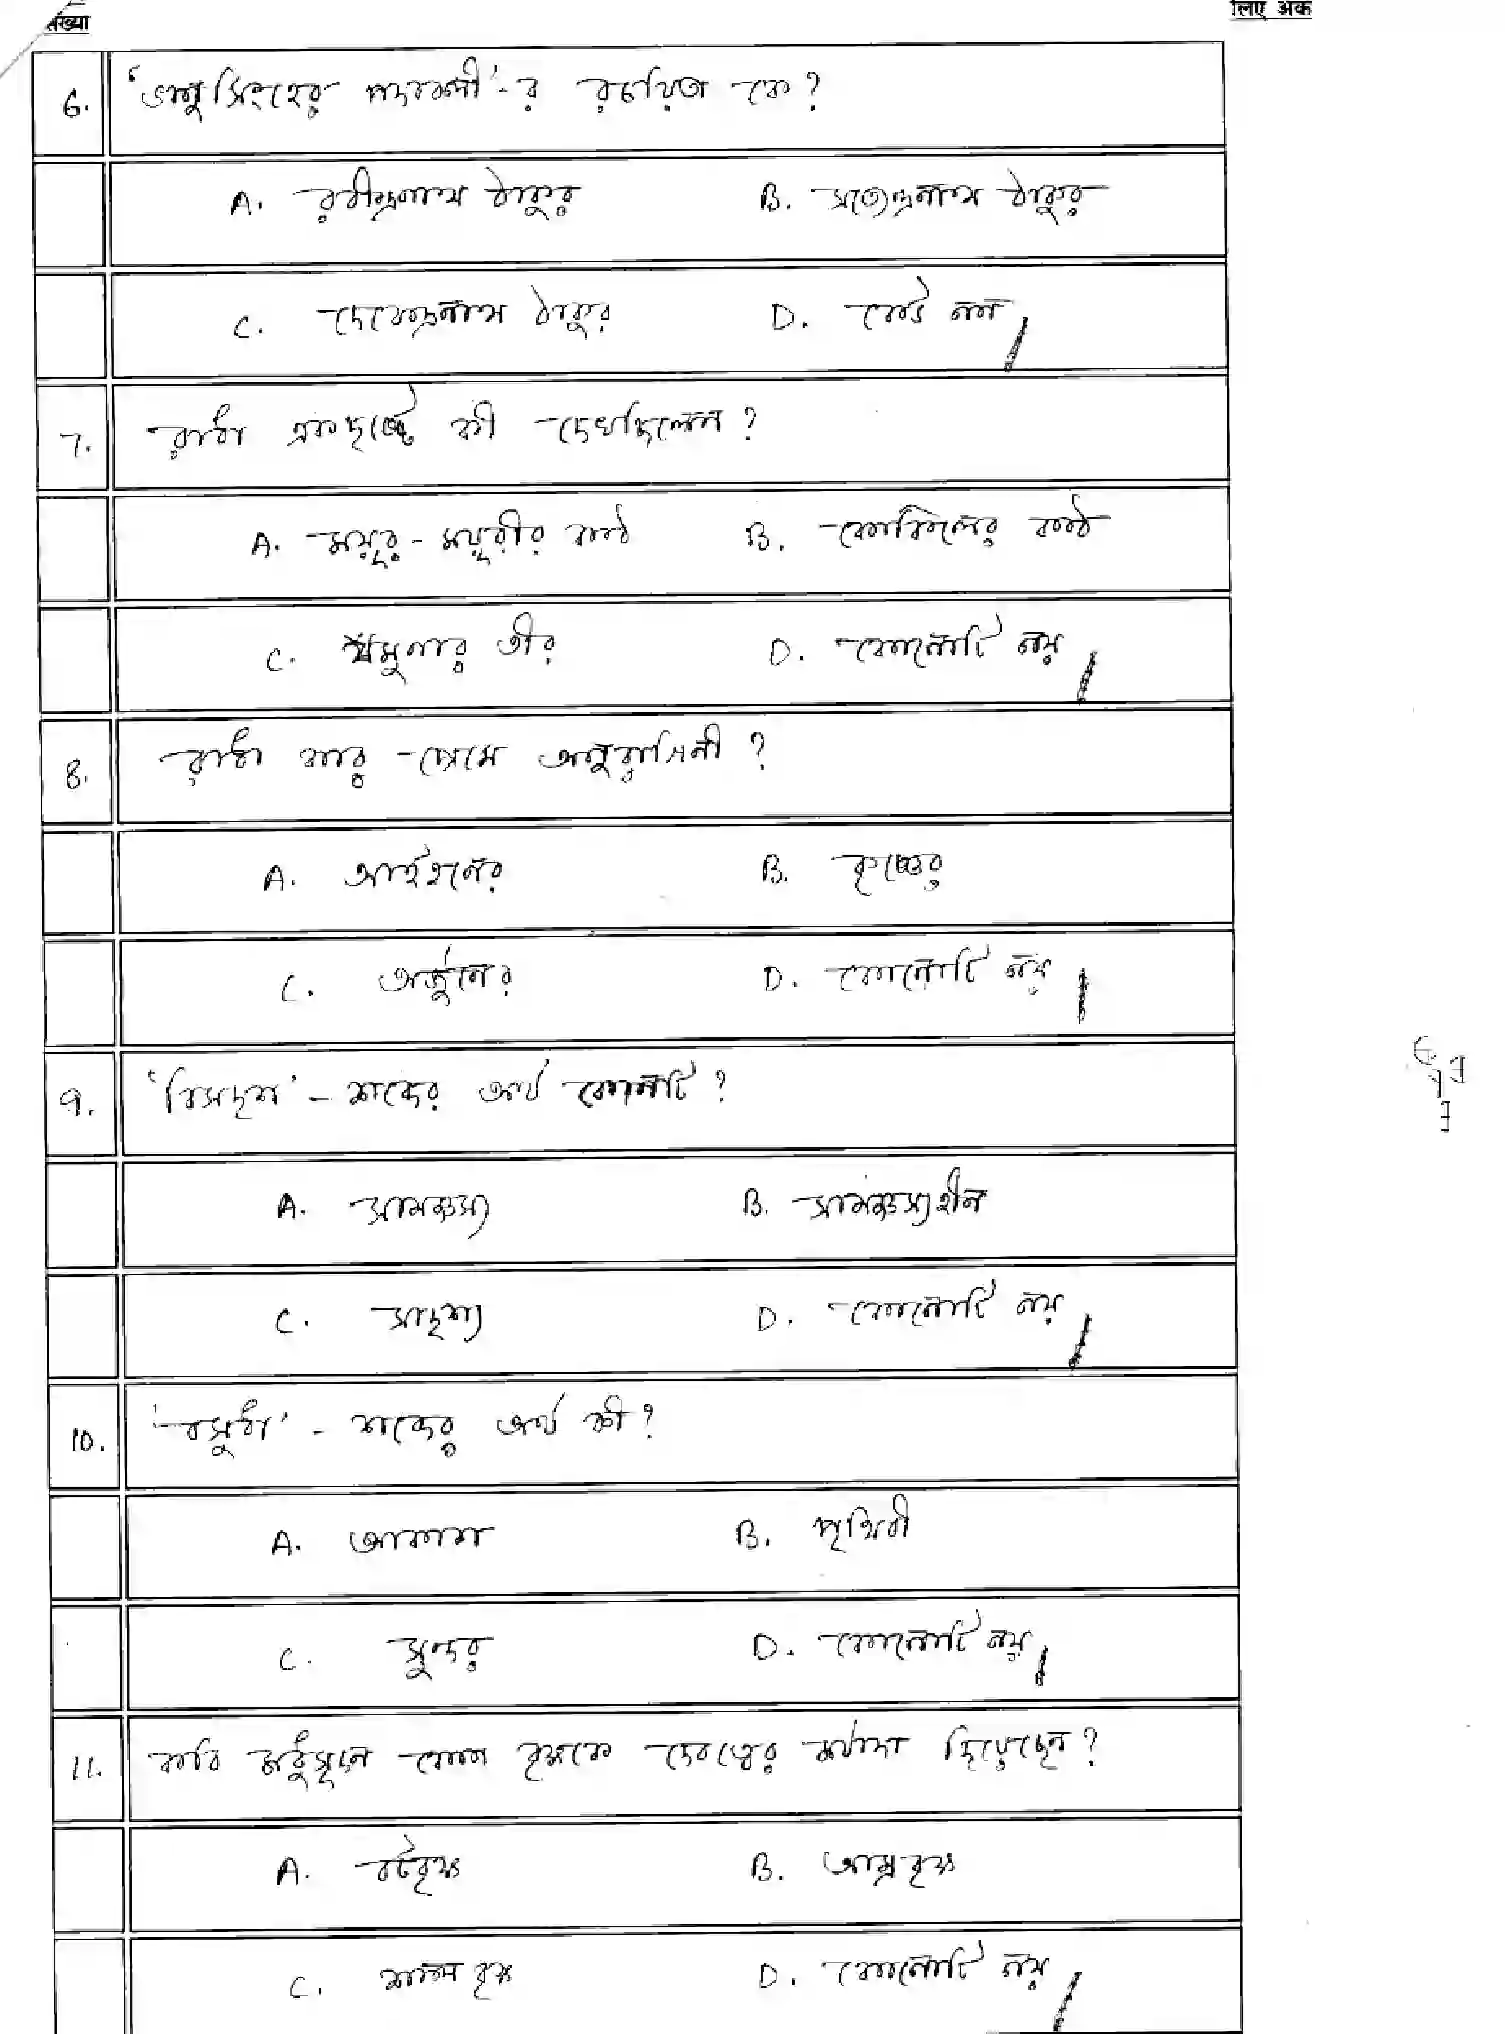 संख्या
लिए अंक
6. 'ভানুসিংহের পদাবলী'-র রচয়িতা কে?
A. রবীন্দ্রনাথ ঠাকুর B. সত্যেন্দ্রনাথ ঠাকুর
C. দেবেন্দ্রনাথ ঠাকুর D. কেউ নন
7. রাধা একদৃষ্টে কী দেখছিলেন?
A. ময়ূর-ময়ূরীর কণ্ঠ B. কোকিলের কণ্ঠ
C. যমুনার তীর D. কোনোটি নয়
8. রাধা কার প্রেমে অনুরাগিনী?
A. আইহনের B. কৃষ্ণের
C. অর্জুনের D. কোনোটি নয়
9. 'বিসদৃশ' - শব্দের অর্থ কোনটি?
A. সামঞ্জস্য B. সামঞ্জস্যহীন
C. সাদৃশ্য D. কোনোটি নয়
10. 'বসুধা' - শব্দের অর্থ কী?
A. আকাশ B. পৃথিবী
C. সুন্দর D. কোনোটি নয়
11. কবি মধুসূদন কোন বৃক্ষকে দেবত্বের মর্যাদা দিয়েছেন?
A. বটবৃক্ষ B. আম্রবৃক্ষ
C. শাল বৃক্ষ D. কোনোটি নয়